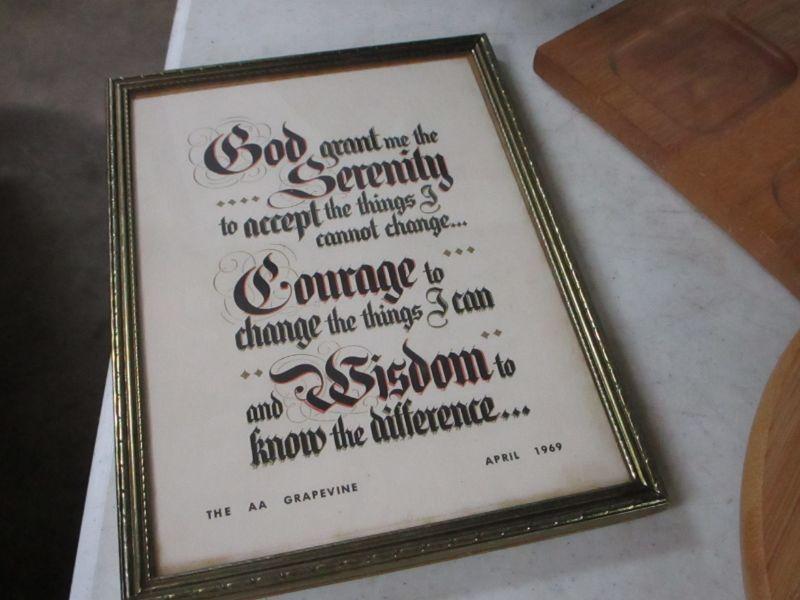 God grant me the
Serenity
to accept the things I
cannot change...
Courage to
change the things I can
and Wisdom to
know the difference...
THE AA GRAPEVINE
APRIL 1969